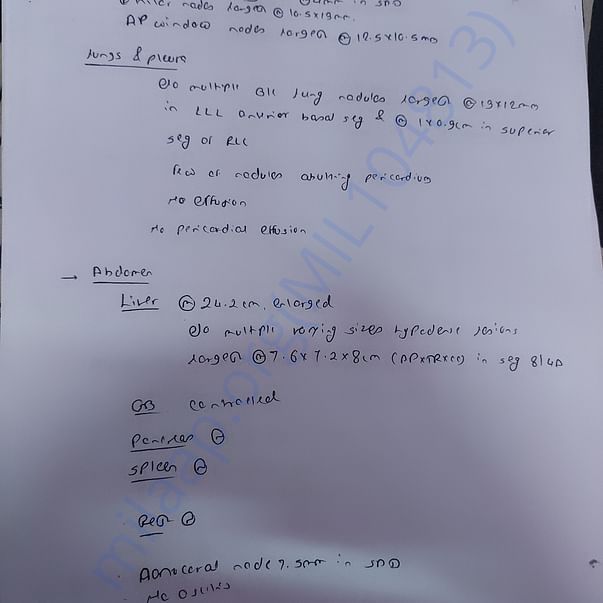 nodes largest @ 10.5x19mm.
AP window nodes largest @ 12.5x10.5mm
Lungs & pleura
e/o multiple B/L lung nodules largest @ 13x12mm
in LLL anterior basal seg & @ 1x0.9cm in superior
seg of RLL
Few of nodules abutting pericardium
No effusion
No pericardial effusion
→ Abdomen
Liver @ 24.2cm, enlarged
e/o multiple varying sizes hypodense lesions
largest @ 7.6x7.2x8cm (APxTRxCC) in seg 8/4A
GB contracted
Pancreas
Spleen
Aortocaval node 7.5mm in SAD
No ascites
milaap.org(MIL104813)